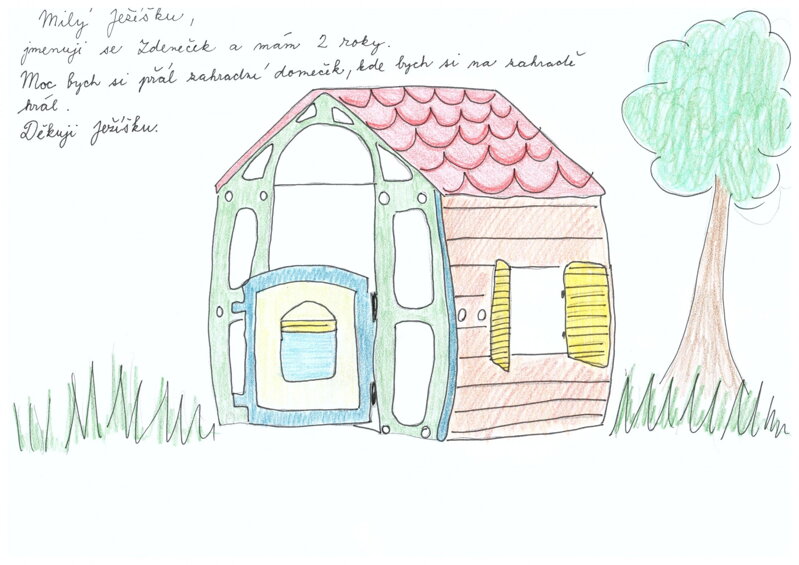 Milý Ježíšku,
jmenuji se Zdeneček a mám 2 roky.
Moc bych si přál zahradní domeček, kde bych si na zahradě
hrál.
Děkuji Ježíšku.